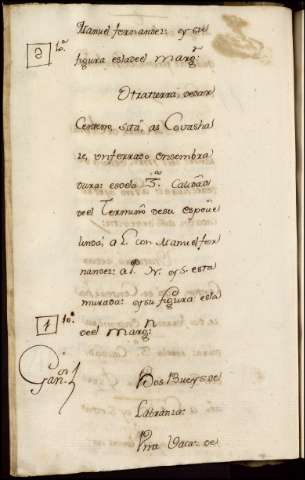 Manuel fernandez: y su
figura esla del marg.n
Otra tierra, de dar
Centeno, sita, as Covasha
un ferrado ensembra
dura: es dela 3.a Calidad
del Termino de su espeue
linda: a L. con Manuel fer
nandez: a P. N. y S. esta
murada: y su figura esla
del marg.n
Gan.do
Dos Bueys de
Labranza:
Una Vaca: de